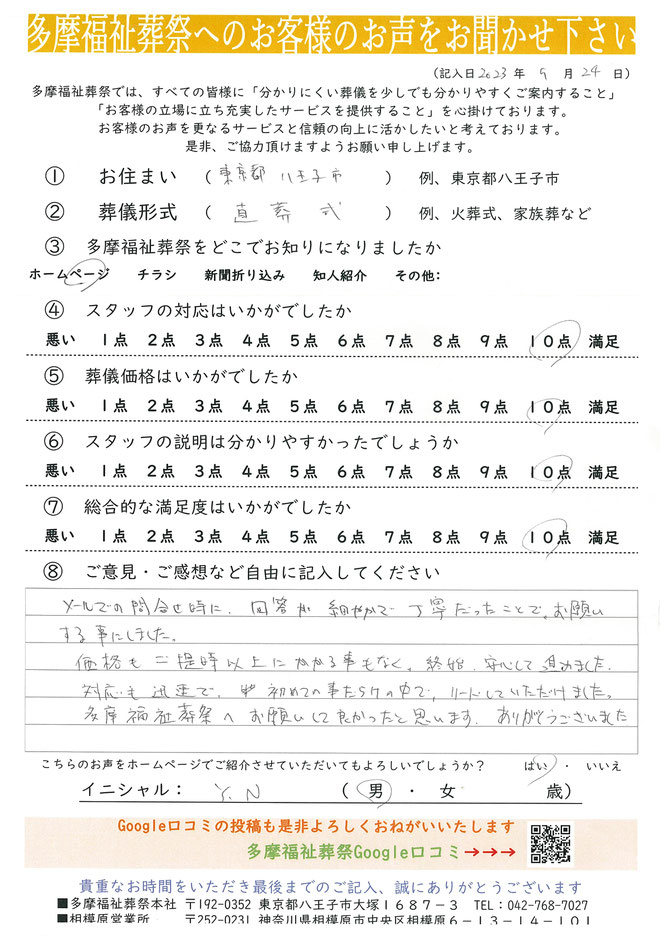 多摩福祉葬祭へのお客様のお声をお聞かせ下さい
(記入日2023年 9 月 24 日)
多摩福祉葬祭では、すべての皆様に「分かりにくい葬儀を少しでも分かりやすくご案内すること」
「お客様の立場に立ち充実したサービスを提供すること」を心掛けております。
お客様のお声を更なるサービスと信頼の向上に活かしたいと考えております。
是非、ご協力頂けますようお願い申し上げます。
① お住まい (東京都 八王子市) 例、東京都八王子市
② 葬儀形式 (直葬式) 例、火葬式、家族葬など
③ 多摩福祉葬祭をどこでお知りになりましたか
ホームページ チラシ 新聞折り込み 知人紹介 その他:
④ スタッフの対応はいかがでしたか
悪い 1点 2点 3点 4点 5点 6点 7点 8点 9点 10点 満足
⑤ 葬儀価格はいかがでしたか
悪い 1点 2点 3点 4点 5点 6点 7点 8点 9点 10点 満足
⑥ スタッフの説明は分かりやすかったでしょうか
悪い 1点 2点 3点 4点 5点 6点 7点 8点 9点 10点 満足
⑦ 総合的な満足度はいかがでしたか
悪い 1点 2点 3点 4点 5点 6点 7点 8点 9点 10点 満足
⑧ ご意見・ご感想など自由に記入してください
メールでの問合せ時に、回答が細やかで丁寧だったことで、お願い
する事にしました。
価格もご提時以上にかかる事もなく、終始、安心して進めました。
対応も迅速で、初めての事だらけの中で、リードしていただけました。
多摩福祉葬祭へお願いして良かったと思います。ありがとうございました
こちらのお声をホームページでご紹介させていただいてもよろしいでしょうか? はい ・ いいえ
イニシャル: Y.N (男・女 歳)
Google口コミの投稿も是非よろしくおねがいいたします
多摩福祉葬祭Google口コミ→→→
貴重なお時間をいただき最後までのご記入、誠にありがとうございます
■多摩福祉葬祭本社 〒192-0352 東京都八王子市大塚1687-3 TEL:042-768-7027
■相模原営業所 〒252-0231 神奈川県相模原市中央区相模原6-13-14-101